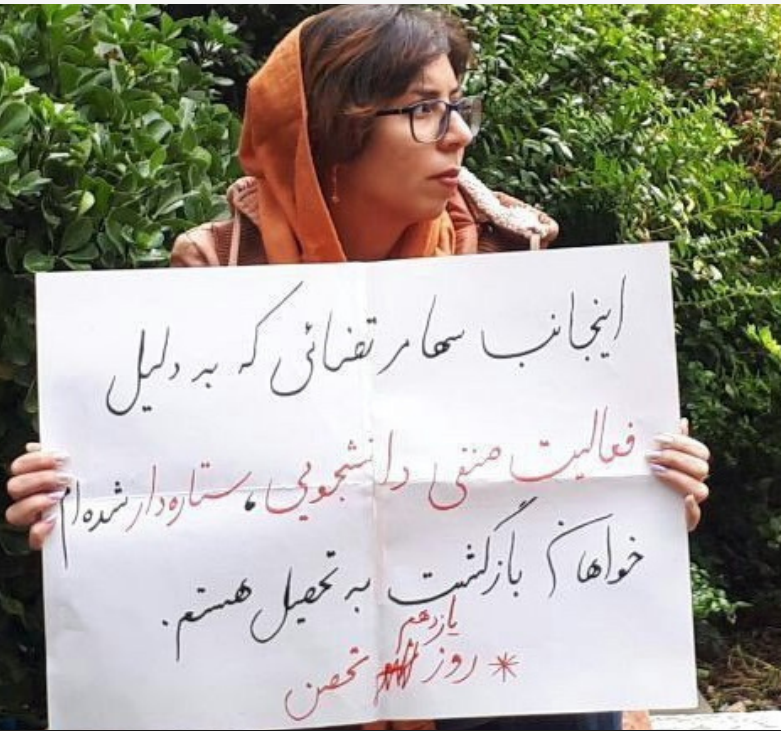 اینجانب سها مرتضائی که به دلیل
فعالیت صنفی دانشجویی، ستاره‌دار شده‌ام
خواهان بازگشت به تحصیل هستم.
یازدهم
* روز تحصن